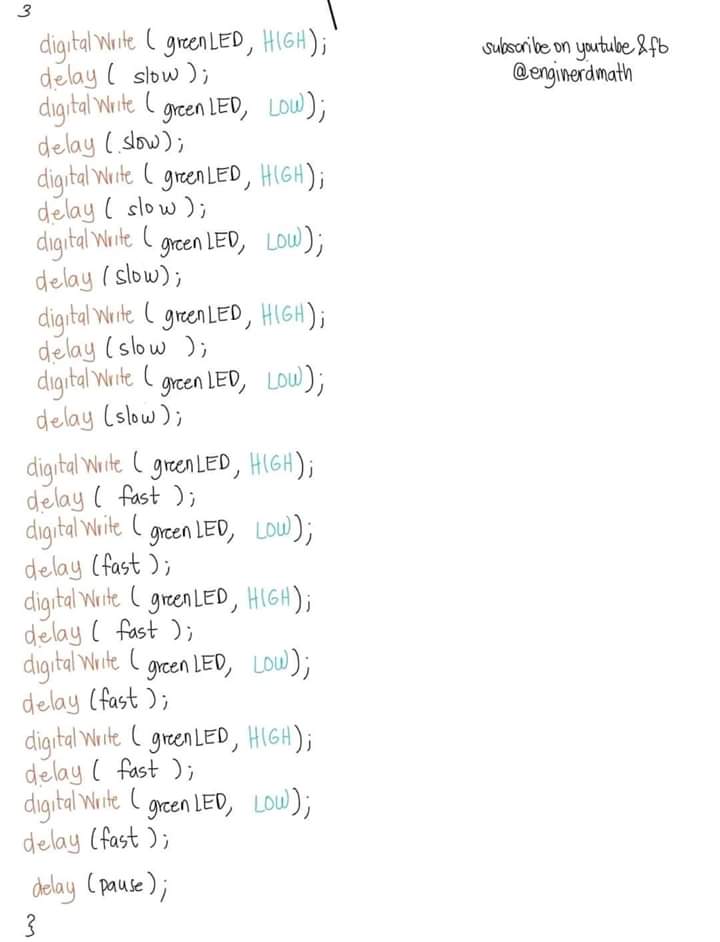 3
digitalWrite ( greenLED, HIGH);
delay ( slow);
digitalWrite ( greenLED, LOW);
delay (slow);
digitalWrite ( greenLED, HIGH);
delay ( slow );
digitalWrite ( greenLED, LOW);
delay (slow);
digitalWrite ( greenLED, HIGH);
delay (slow );
digitalWrite ( greenLED, LOW);
delay (slow);
digitalWrite ( greenLED, HIGH);
delay ( fast );
digitalWrite ( greenLED, LOW);
delay (fast );
digitalWrite ( greenLED, HIGH);
delay ( fast );
digitalWrite ( greenLED, LOW);
delay (fast );
digitalWrite ( greenLED, HIGH);
delay ( fast );
digitalWrite ( greenLED, LOW);
delay (fast );
delay (pause);
}
subscribe on youtube & fb
@enginerdmath